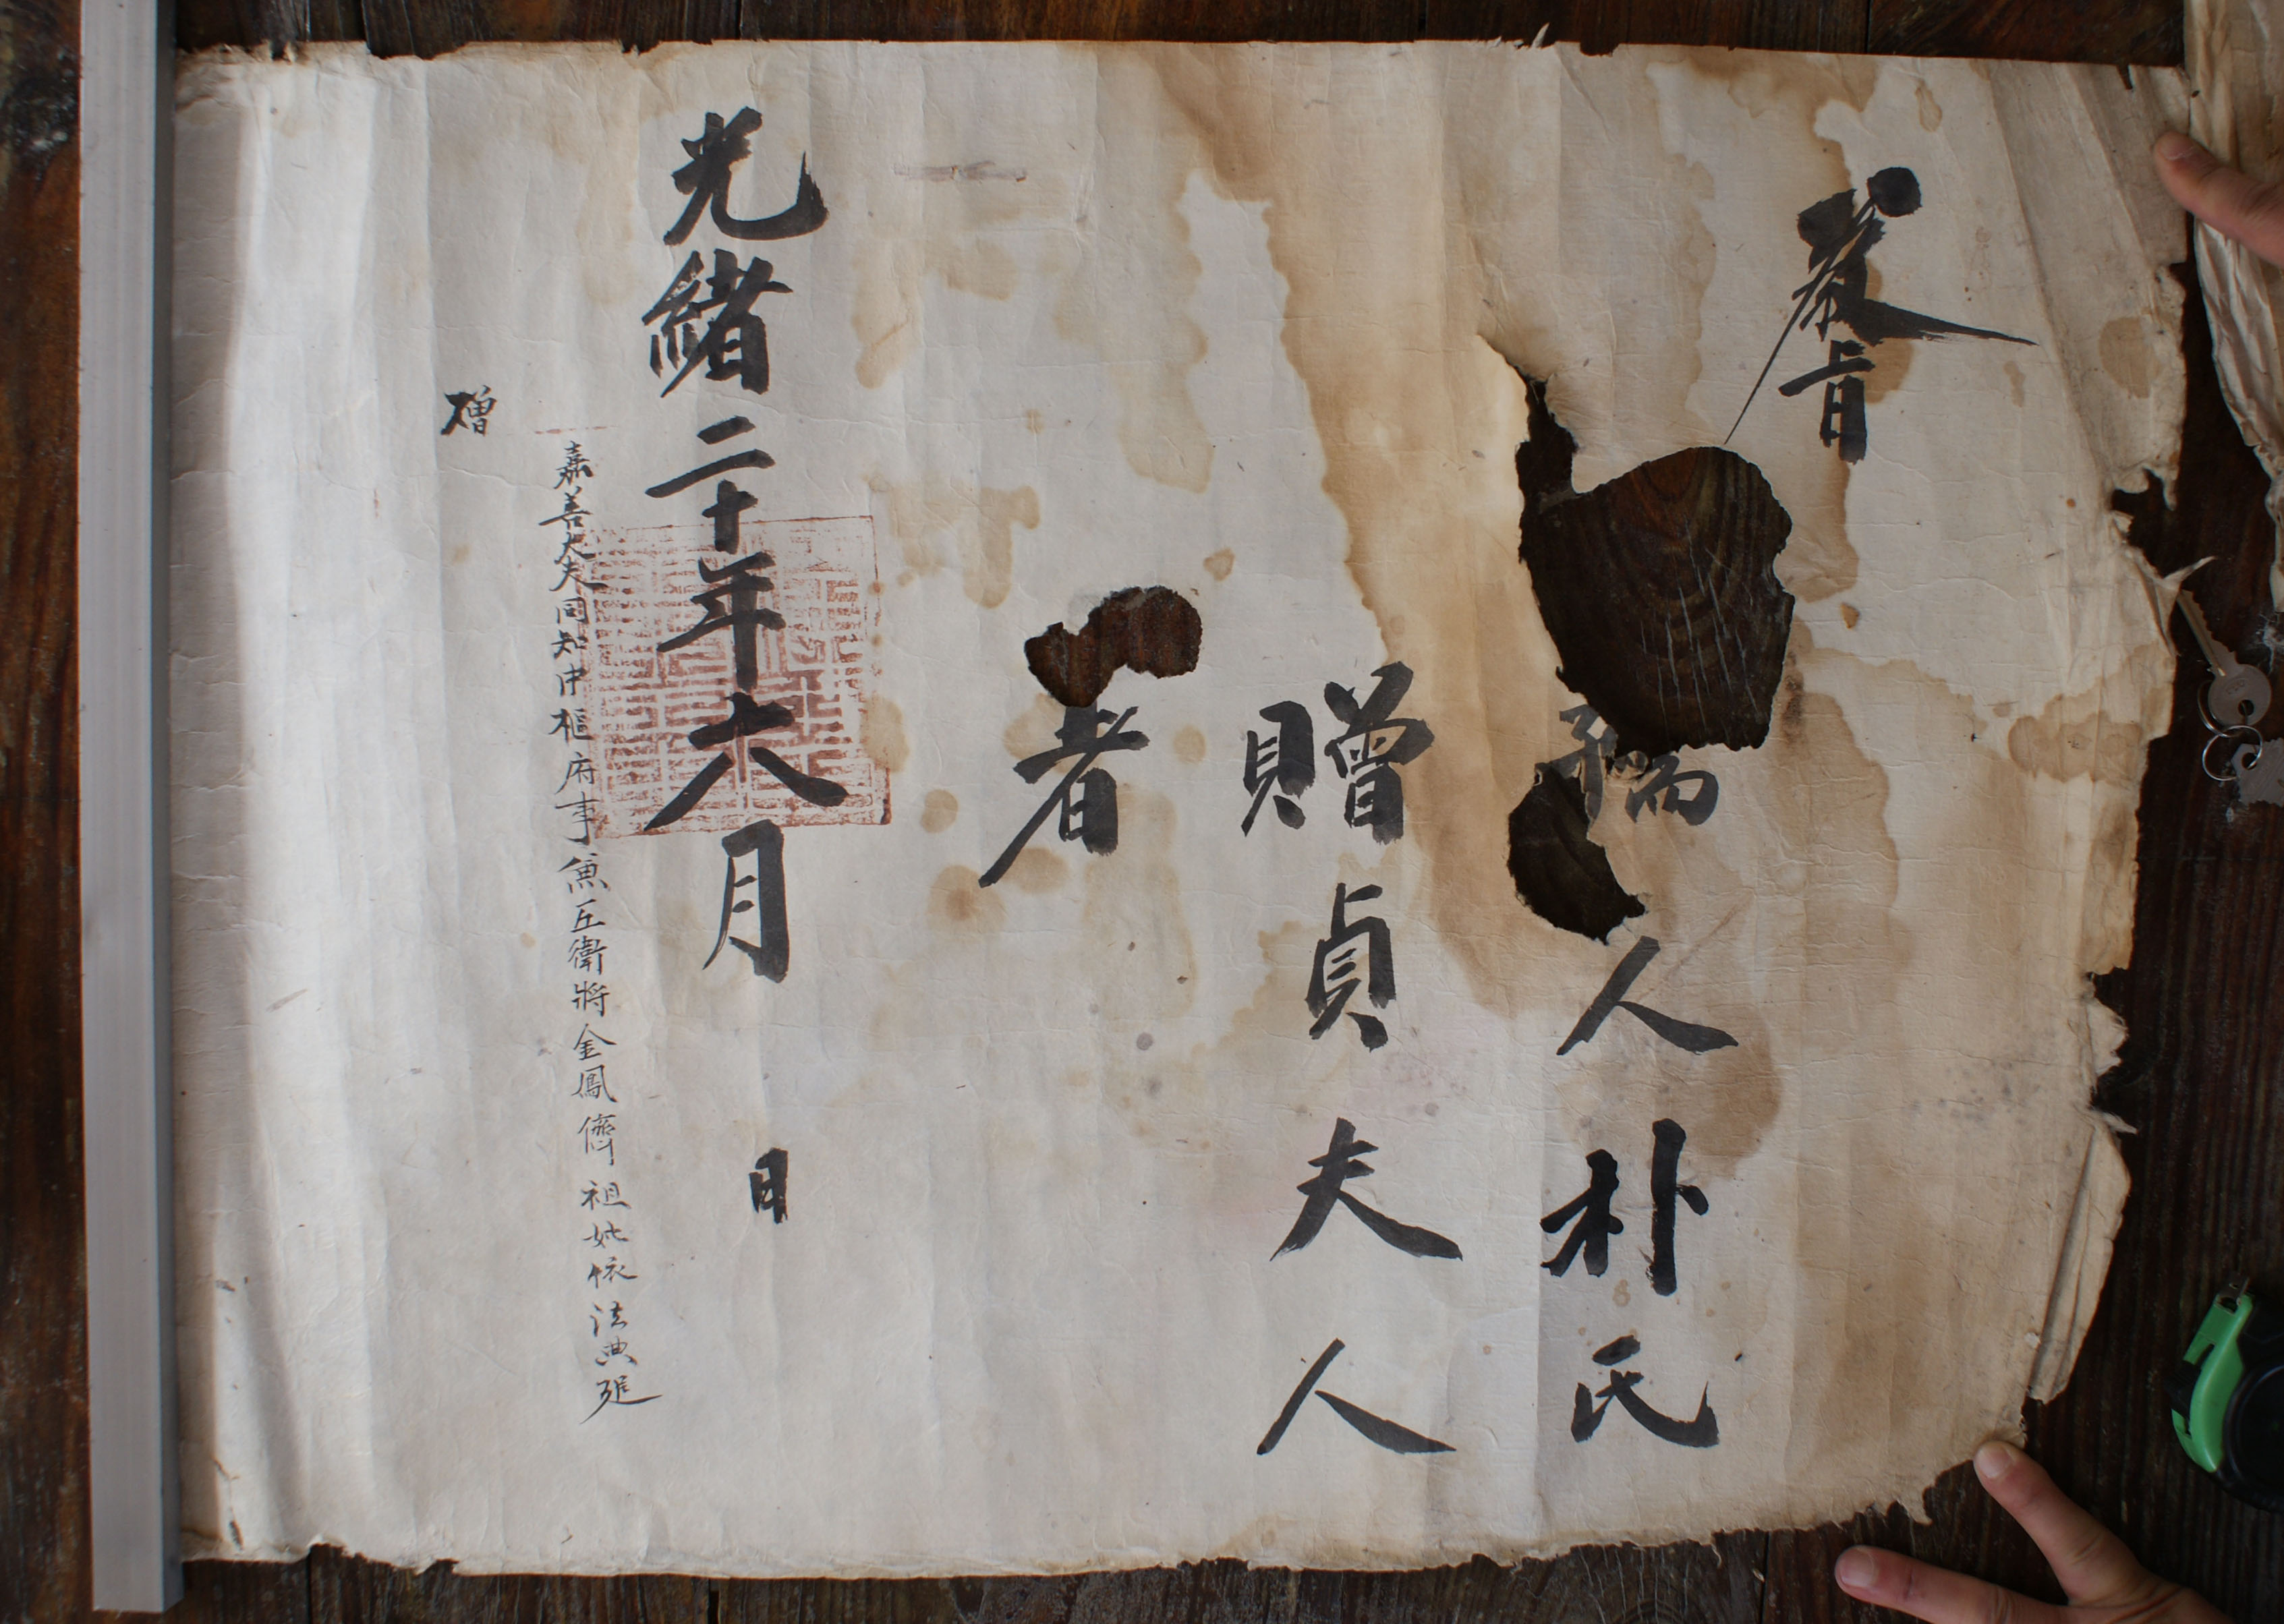 敎旨
孺人朴氏
贈貞夫人
者
光緖二十年六月 日
嘉善大夫同知中樞府事兼五衛將金鳳儕祖妣依法典追
贈